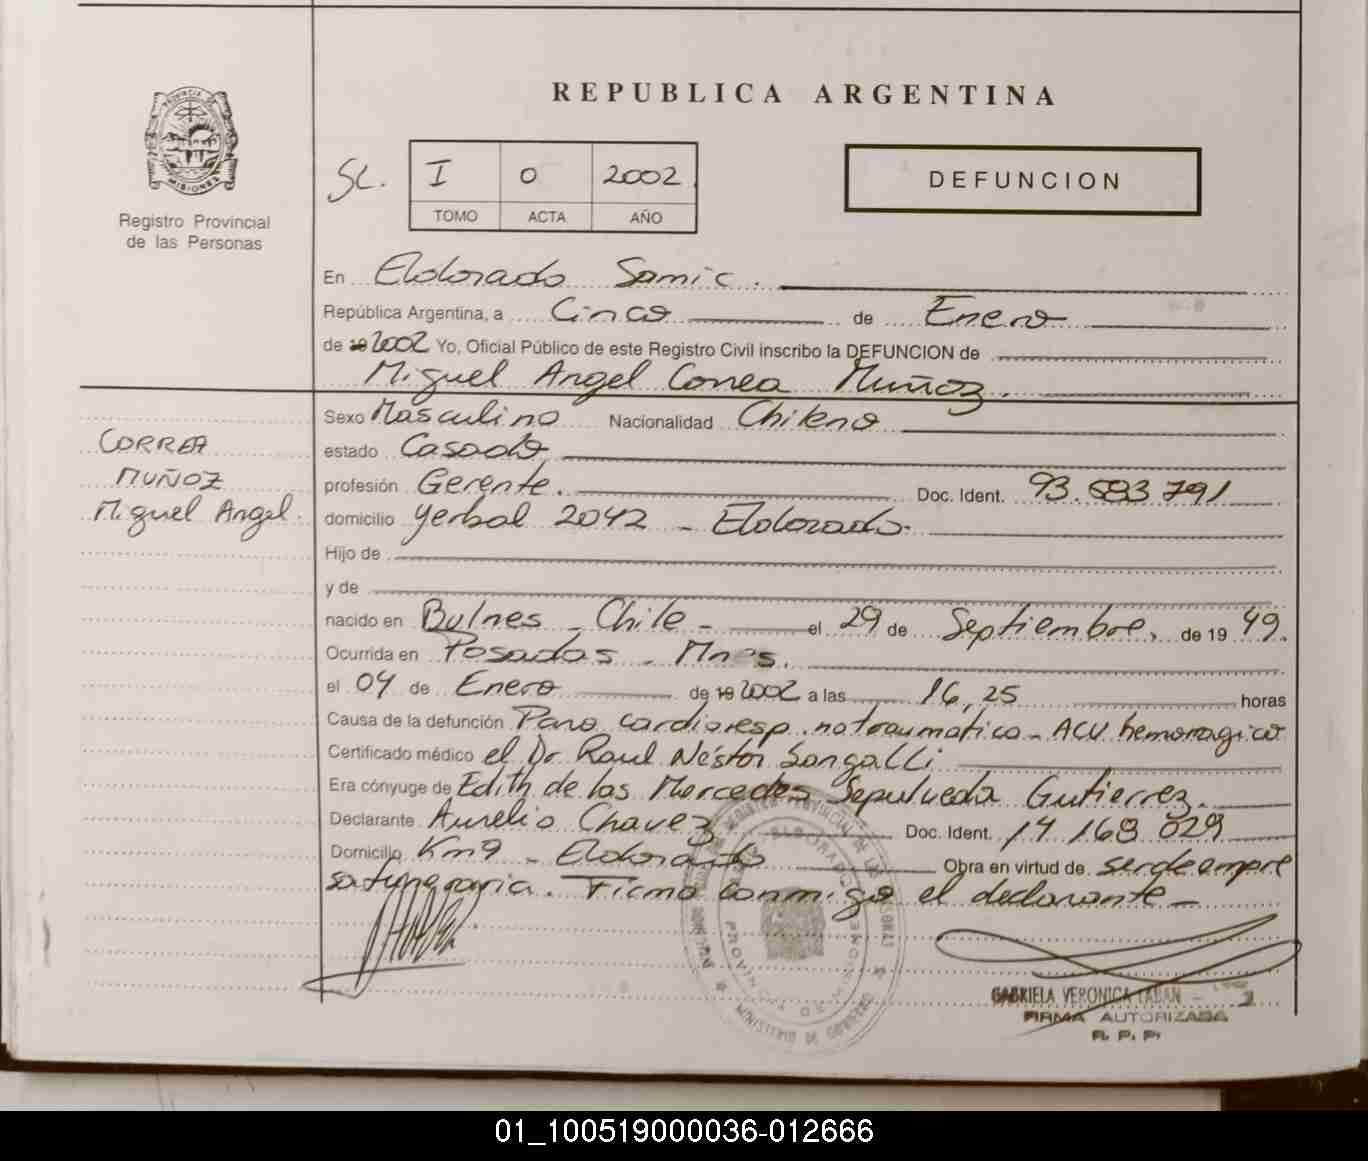 REPUBLICA ARGENTINA
PROVINCIA DE
MISIONES
Registro Provincial
de las Personas
Sc. I 0 2002
TOMO ACTA AÑO
DEFUNCION
En Eldorado Samic.
República Argentina, a Cinco de Enero
de 19 2002 Yo, Oficial Público de este Registro Civil inscribo la DEFUNCION de
Miguel Angel Correa Muñoz.
CORREA
MUÑOZ
Miguel Angel.
Sexo Masculino Nacionalidad Chileno
estado Casado
profesión Gerente. Doc. Ident. 93.683 791
domicilio Yerbal 2042 - Eldorado.
Hijo de
y de
nacido en Bulnes - Chile - el 29 de Septiembre, de 19 49.
Ocurrida en Posadas - Mnes.
el 04 de Enero de 19 2002 a las 16,25 horas
Causa de la defunción Paro cardioresp. no traumatico - ACV hemorragico
Certificado médico el Dr Raul Néstor Sangalli
Era cónyuge de Edith de las Mercedes Sepulveda Gutierrez.
Declarante Aurelio Chavez Doc. Ident. 14 168 029
Domicilio Km9 - Eldorado Obra en virtud de ser de empre
sa funeraria. Firma conmigo el declarante -
GABRIELA VERONICA
FIRMA AUTORIZADA
R. P. P.
MINISTERIO DE GOBIERNO
01_100519000036-012666